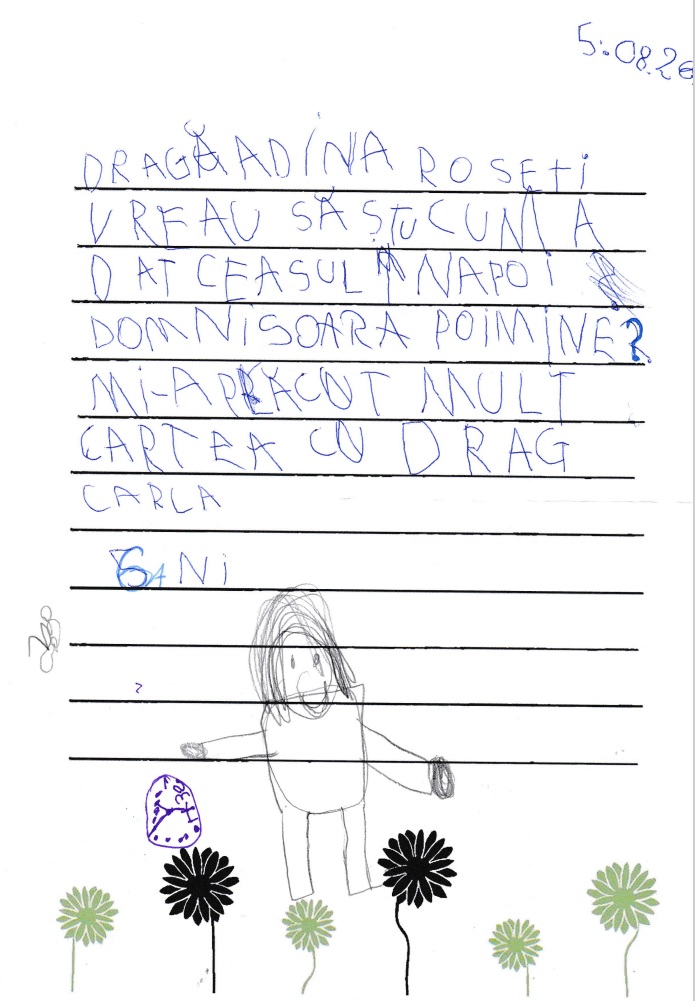 5.08.26
DRAGĂ ADINA ROSETI
VREAU SĂ ȘTU CUM A
DAT CEASUL ÎNAPOI
DOMNISOARA POIMINE?
MI-A PLĂCUT MULT
CARTEA CU DRAG
CARLA
6 ANI